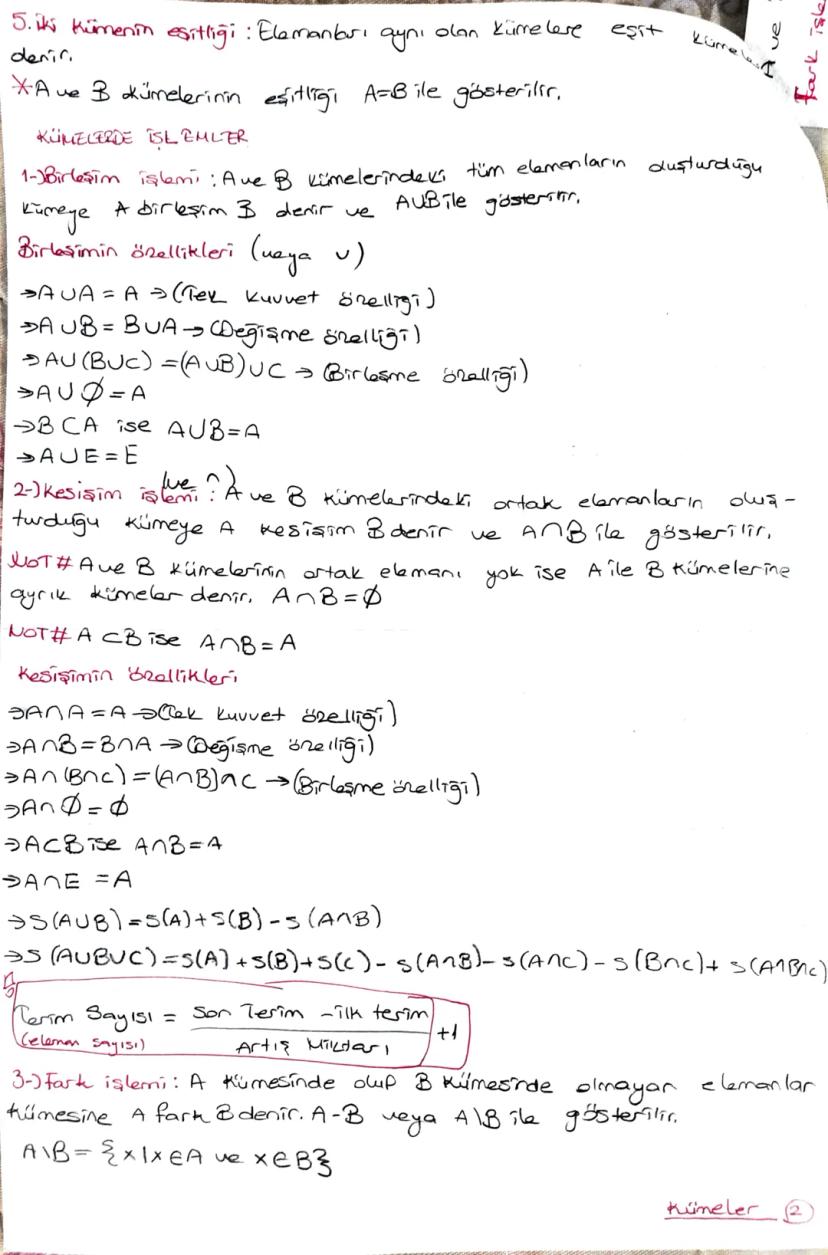 5. İki Kümenin eşitliği : Elemanları aynı olan kümelere eşit kümeler
denir.
*A ve B kümelerinin eşitliği A=B ile gösterilir.
KÜMELERDE İŞLEMLER
1-)Birleşim işlemi : A ve B kümelerindeki tüm elemanların oluşturduğu
kümeye A birleşim B denir ve AUB ile gösterilir.
Birleşimin özellikleri (veya ∪)
→A∪A = A → (Tek kuvvet özelliği)
→A∪B = B∪A → (Değişme özelliği)
→A∪(B∪C) = (A∪B)∪C → (Birleşme özelliği)
→A∪Ø=A
→B⊂A ise A∪B=A
→A∪E=E
2-)Kesişim işlemi (ve ∩) : A ve B kümelerindeki ortak elemanların oluş-
turduğu kümeye A kesişim B denir ve A∩B ile gösterilir.
NOT# A ve B kümelerinin ortak elemanı yok ise A ile B kümelerine
ayrık kümeler denir. A∩B=Ø
NOT# A⊂B ise A∩B=A
Kesişimin özellikleri
→A∩A=A →(Tek kuvvet özelliği)
→A∩B=B∩A → (Değişme özelliği)
→A∩(B∩C)=(A∩B)∩C →(Birleşme özelliği)
→A∩Ø=Ø
→A⊂B ise A∩B=A
→A∩E =A
→S(A∪B)=S(A)+S(B)-S(A∩B)
→S(A∪B∪C)=S(A)+S(B)+S(C)-S(A∩B)-S(A∩C)-S(B∩C)+S(A∩B∩C)
Terim Sayısı = Son Terim - ilk terim
(eleman sayısı) Artış Miktarı +1
3-)Fark işlemi : A kümesinde olup B kümesinde olmayan elemanlar
kümesine A fark B denir. A-B veya A\B ile gösterilir.
A\B= {x|x∈A ve x∈B}
Kümeler 2
ve
Fark işle